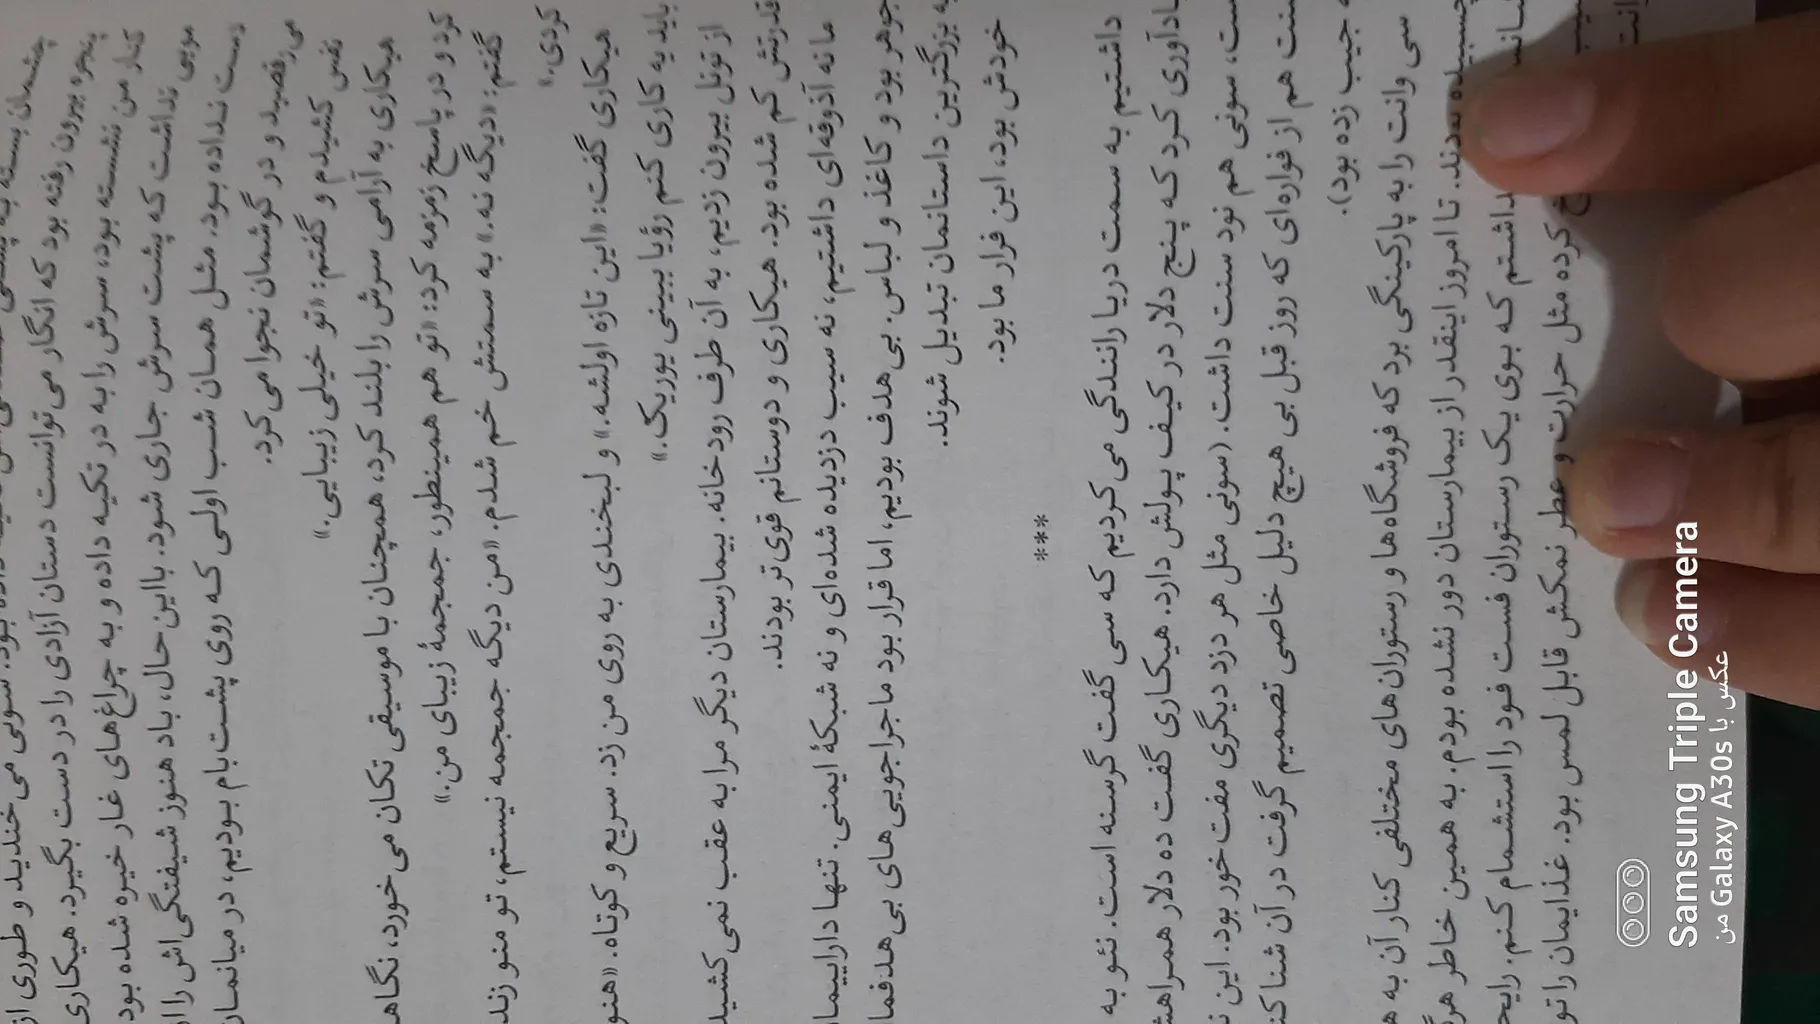 چشمان بسته به پشتی
پنجره بیرون رفته بود که انگار می‌توانست دستان آزادی را در دست بگیرد. هیکاری
کنار من نشسته بود، سرش را به در تکیه داده و به چراغ‌های غار خیره شده بود
مویی نداشت که پشت سرش جاری شود. بااین حال، باد هنوز شیفتگی‌اش را از
دست نداده بود. مثل همان شب اولی که روی پشت‌بام بودیم، در میانمان
می‌رقصید و در گوشمان نجوا می‌کرد.
نفس کشیدم و گفتم: «تو خیلی زیبایی.»
هیکاری به آرامی سرش را بلند کرد، همچنان با موسیقی تکان می‌خورد، نگاهم
کرد و در پاسخ زمزمه کرد: «تو هم همینطور، جمجمۀ زیبای من.»
گفتم: «دیگه نه.» به سمتش خم شدم. «من دیگه جمجمه نیستم، تو منو زنده
کردی.»
هیکاری گفت: «این تازه اولشه.» و لبخندی به روی من زد. سریع و کوتاه. «هنوز
باید یه کاری کنم رؤیا ببینی یوریک.»
از تونل بیرون زدیم، به آن طرف رودخانه. بیمارستان دیگر مرا به عقب نمی‌کشید
قدرتش کم شده بود. هیکاری و دوستانم قوی‌تر بودند.
ما نه آذوقه‌ای داشتیم، نه سیب دزدیده شده‌ای و نه شبکۀ ایمنی. تنها داراییمان
جوهر بود و کاغذ و لباس. بی‌هدف بودیم، اما قرار بود ماجراجویی های بی‌هدفمان
به بزرگترین داستانمان تبدیل شوند.
خودش بود، این فرار ما بود.
***
داشتیم به سمت دریا رانندگی می‌کردیم که سی گفت گرسنه است. نئو به
یادآوری کرد که پنج دلار در کیف پولش دارد. هیکاری گفت ده دلار همراهش
است، سونی هم نود سنت داشت. (سونی مثل هر دزد دیگری مفت‌خور بود. این
سنت هم از فواره‌ای که روز قبل بی هیچ دلیل خاصی تصمیم گرفت در آن شنا کند
به جیب زده بود).
سی وانت را به پارکینگی برد که فروشگاه‌ها و رستوران‌های مختلفی کنار آن به هم
چسبیده بودند. تا امروز اینقدر از بیمارستان دور نشده بودم. به همین خاطر هرگز
نداشتم که بوی یک رستوران فست فود را استشمام کنم. رایحه
کرده مثل حرارت و عطر نمکش قابل لمس بود. غذایمان را تو
وانت
Samsung Triple Camera
عکس با Galaxy A30s من